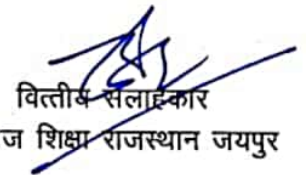 वित्तीय सलाहकार
ज शिक्षा राजस्थान जयपुर